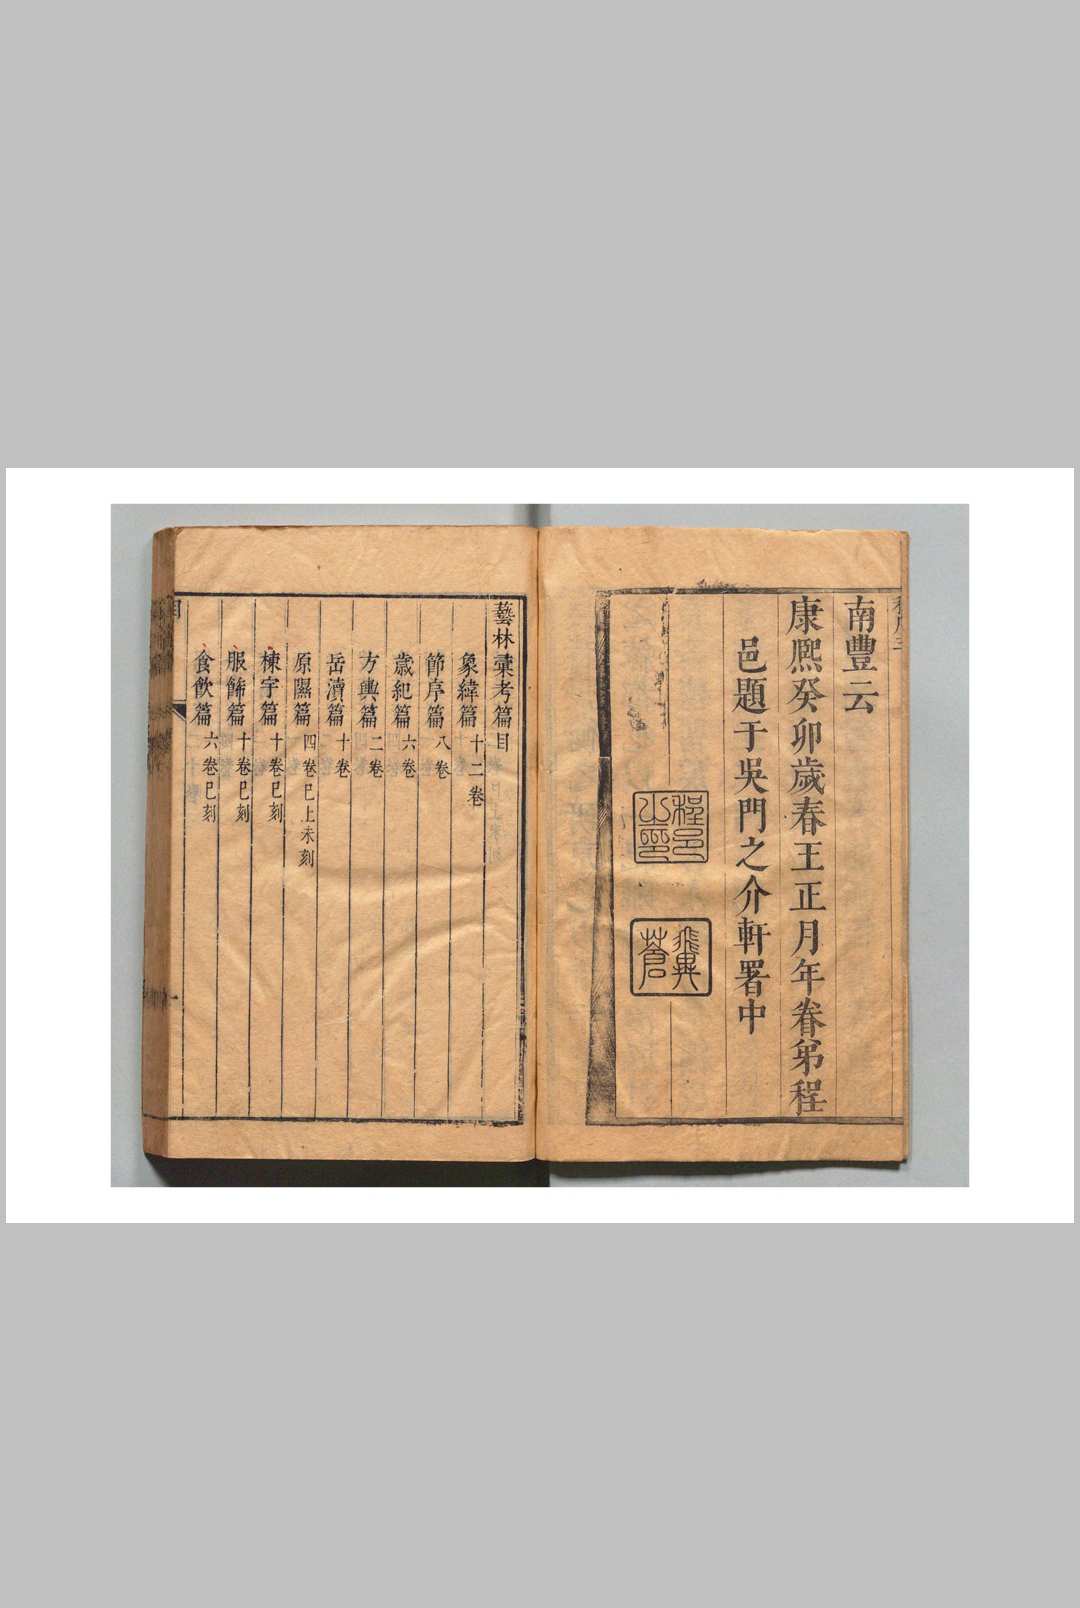 南豐云
康熙癸卯歲春王正月年眷弟程
邑題于吳門之介軒署中
程邑之印
翼蒼
藝林彚考篇目
象緯篇十二卷
節序篇八卷
歲紀篇六卷
方輿篇二卷
岳瀆篇十卷
原隰篇四卷已上未刻
棟宇篇十卷已刻
服餙篇十卷已刻
食飲篇六卷已刻